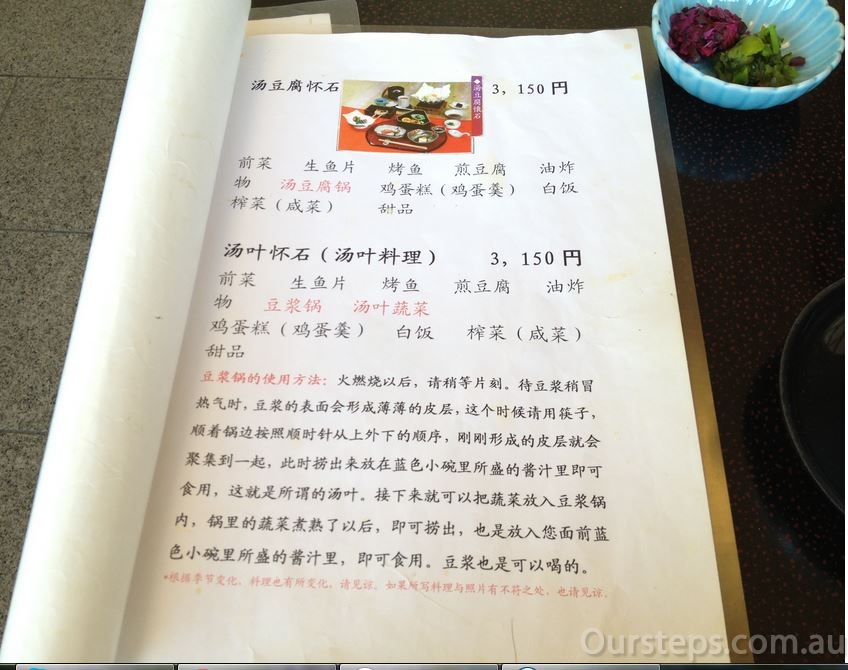 汤豆腐怀石 3，150 円
汤豆腐懐石
前菜 生鱼片 烤鱼 煎豆腐 油炸
物 汤豆腐锅 鸡蛋糕（鸡蛋羹） 白饭
榨菜（咸菜） 甜品
汤叶怀石（汤叶料理） 3，150 円
前菜 生鱼片 烤鱼 煎豆腐 油炸
物 豆浆锅 汤叶蔬菜
鸡蛋糕（鸡蛋羹） 白饭 榨菜（咸菜）
甜品
豆浆锅的使用方法：火燃烧以后，请稍等片刻。待豆浆稍冒
热气时，豆浆的表面会形成薄薄的皮层，这个时候请用筷子，
顺着锅边按照顺时针从上外下的顺序，刚刚形成的皮层就会
聚集到一起，此时捞出来放在蓝色小碗里所盛的酱汁里即可
食用，这就是所谓的汤叶。接下来就可以把蔬菜放入豆浆锅
内，锅里的蔬菜煮熟了以后，即可捞出，也是放入您面前蓝
色小碗里所盛的酱汁里，即可食用。豆浆也是可以喝的。
*根据季节变化，料理也有所变化，请见谅。如果所写料理与照片有不符之处，也请见谅。
Oursteps.com.au